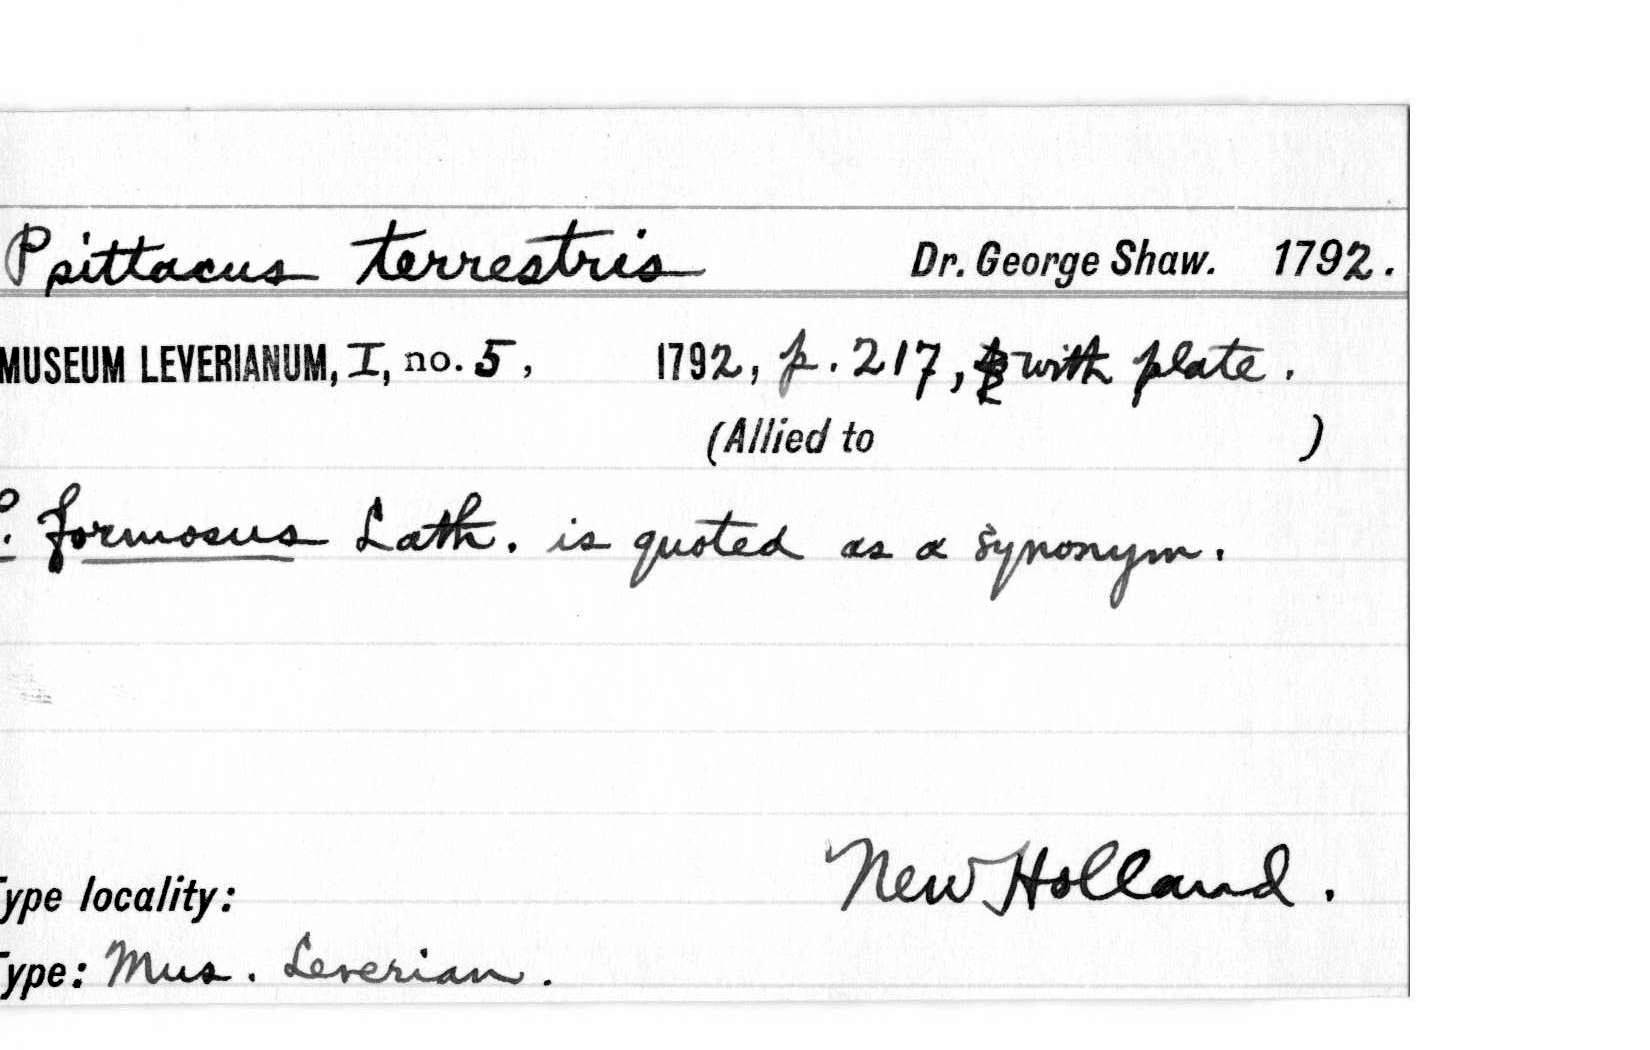 Psittacus terrestris Dr. George Shaw. 1792.
MUSEUM LEVERIANUM, I, no. 5, 1792, p. 217, with plate.
(Allied to )
P. formosus Lath. is quoted as a synonym.
New Holland.
Type locality:
Type: Mus. Leverian.